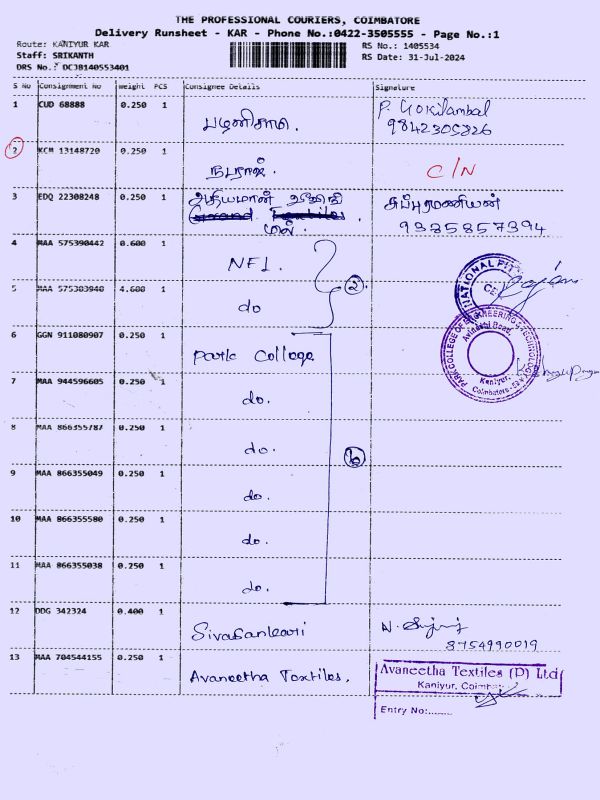 THE PROFESSIONAL COURIERS, COIMBATORE
Delivery Runsheet - KAR - Phone No.:0422-3505555 - Page No.:1
Route: KANIYUR KAR
RS No.: 1405534
Staff: SRIKANTH
RS Date: 31-Jul-2024
DRS No.: DCJB140553401
S No Consignment No Weight PCS Consignee Details Signature
1 CUD 68888 0.250 1 பழனிசாமி. P. Gokilambal
9842305826
2 KCM 13148720 0.250 1 நடராஜ். C/N
3 EDQ 22308248 0.250 1 சுப்புரமணியன்
9385857394
4 MAA 575390442 0.600 1 NFL.
5 MAA 575303940 4.600 1 do 2
6 GGN 911080907 0.250 1 Park College
7 MAA 944596605 0.250 1 do.
8 MAA 866355787 0.250 1 do. 6
9 MAA 866355049 0.250 1 do.
10 MAA 866355580 0.250 1 do.
11 MAA 866355038 0.250 1 do.
12 DDG 342324 0.400 1 Sivasankari
8754990019
13 MAA 704544155 0.250 1 Avaneetha Textiles.
NATIONAL
PARK COLLEGE OF ENGINEERING & TECHNOLOGY
Avinashi Road,
Kaniyur,
Avaneetha Textiles (P) Ltd
Kaniyur, Coimbatore
Entry No:.......